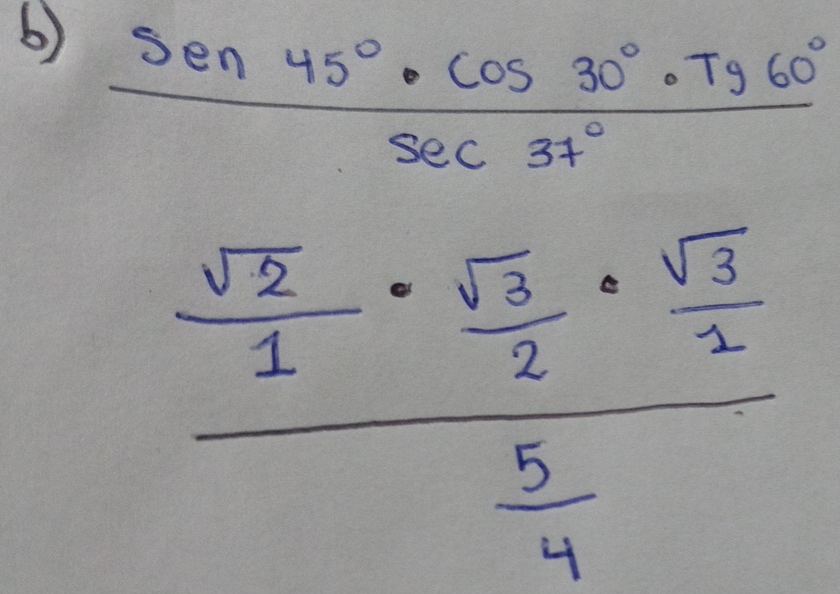 b) Sen 45° • Cos 30° • Tg 60°
sec 37°
√2 • √3 • √3
1 2 1
5
4